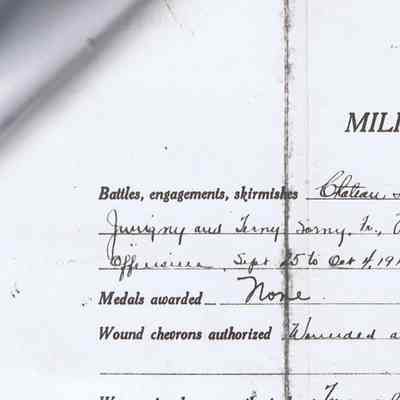 MILI
Battles, engagements, skirmishes Chateau.
Juvigny and Terny Sorny, Fr.,
Offensive, Sept 25 to Oct 4, 191
Medals awarded None
Wound chevrons authorized Wounded a